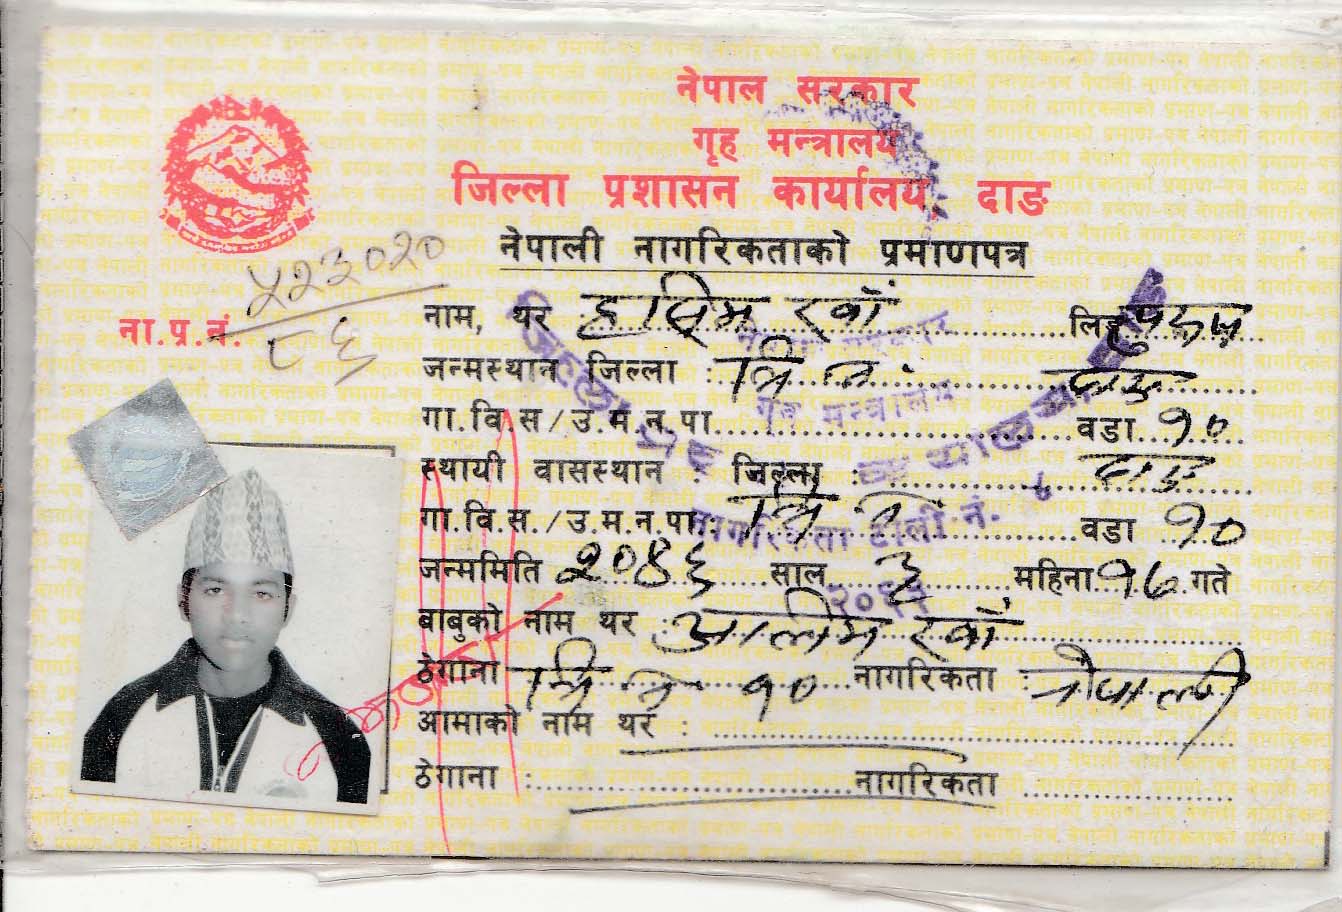 नेपाल सरकार
गृह मन्त्रालय
जिल्ला प्रशासन कार्यालय, दाङ
नेपाली नागरिकताको प्रमाणपत्र
ना.प्र.नं. ५२३०२०/८६
नाम, थर : हासिम खाँ लिङ्ग पुरुष
जन्मस्थान जिल्ला : दाङ
गा.वि.स/उ.म.न.पा. त्रि न वडा १०
स्थायी वासस्थान : जिल्ला : दाङ
गा.वि.स./उ.म.न.पा. : त्रि न वडा १०
जन्ममिति २०४६ साल ३ महिना १७ गते
बाबुको नाम थर : आलीम खाँ
ठेगाना त्रि न १० नागरिकता : नेपाली
आमाको नाम थर :
ठेगाना : नागरिकता
गृह मन्त्रालय
नागरिकता टोली नं.